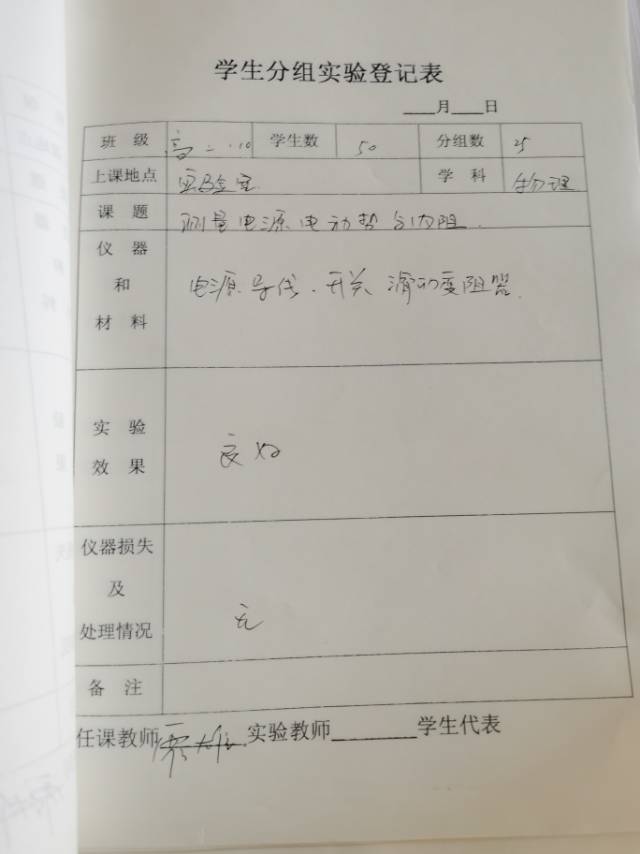 学生分组实验登记表
____月____日
班 级 高二.10 学生数 50 分组数 25
上课地点 实验室 学 科 物理
课 题 测量电源电动势与内阻.
仪 器
和
材 料
电源 导线. 开关 滑动变阻器.
实 验
效 果
良好
仪器损失
及
处理情况
无
备 注
任课教师 实验教师________学生代表